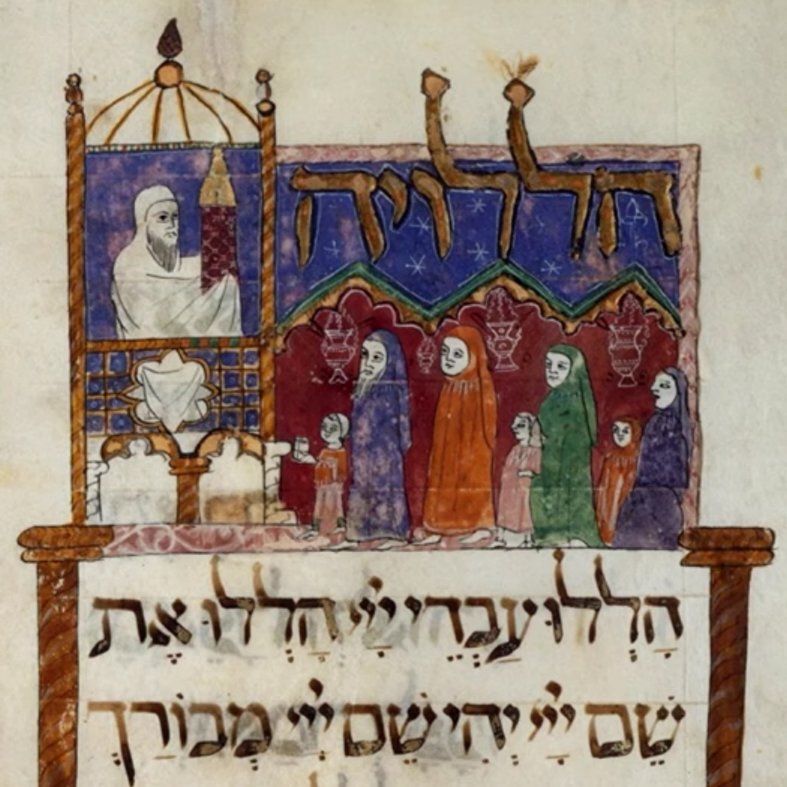 הללויה
הַלְלוּ עַבְדֵי יְיָ הַלְלוּ אֶת
שֵׁם יְיָ יְהִי שֵׁם יְיָ מְבוֹרָךְ